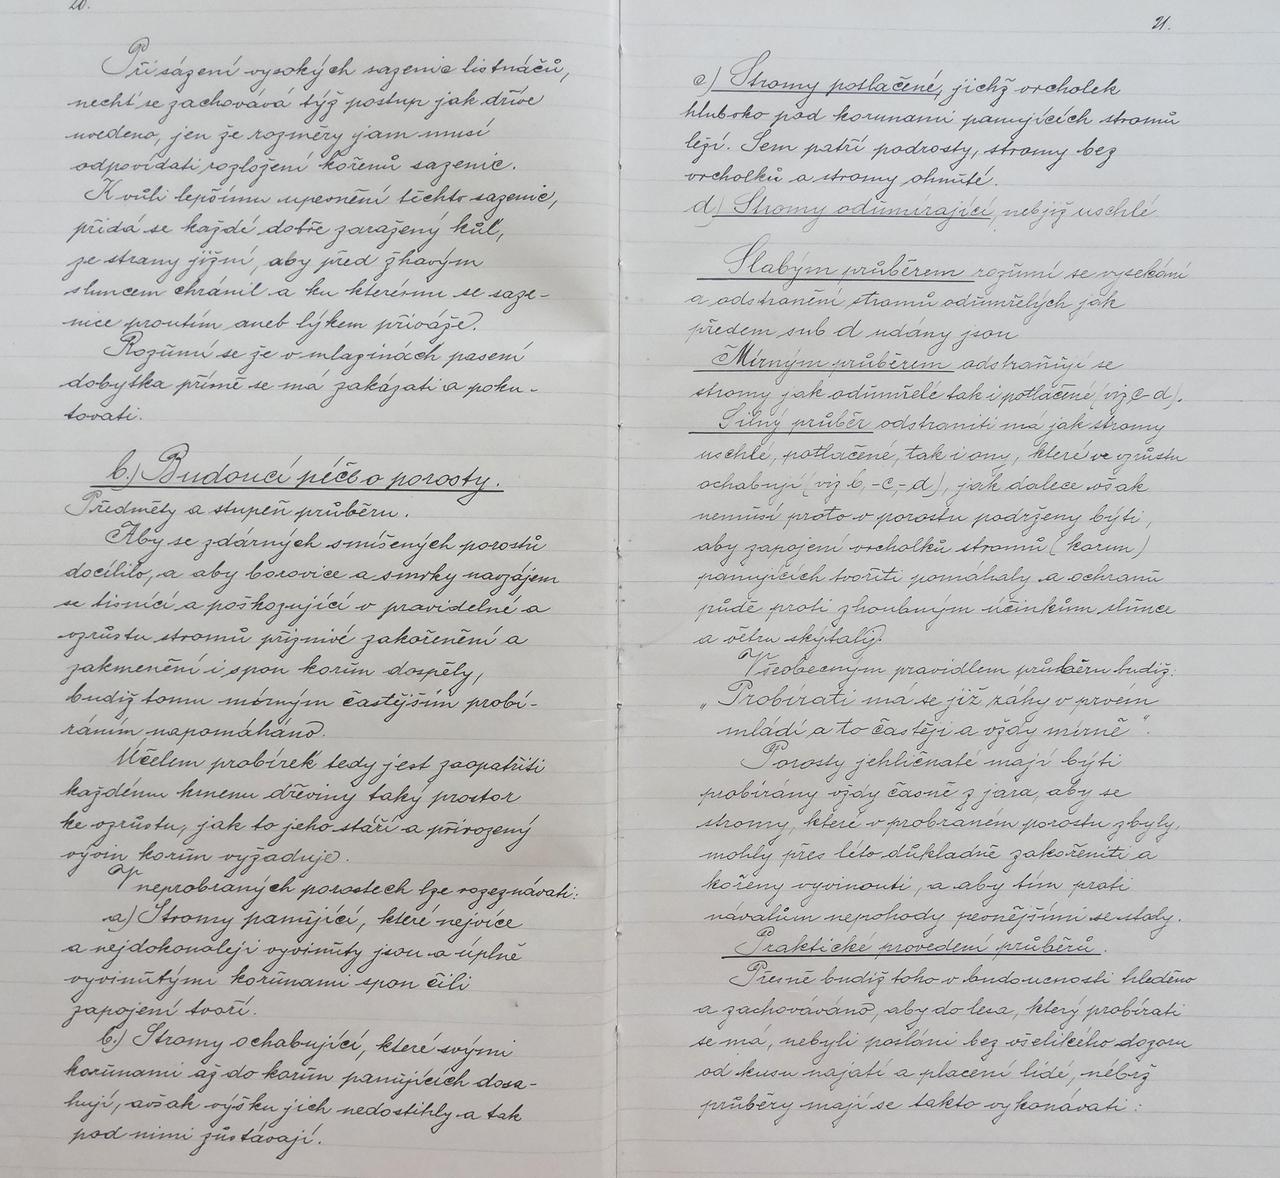 20.
Při sázení vysokých sazenic listnáčů,
nechť se zachovává týž postup jak dříve
uvedeno, jen že rozměry jam musí
odpovídati rozložení kořenů sazenic.
Kvůli lepšímu upevnění těchto sazenic,
přidá se každé dobře zaražený kůl,
ze strany jižní, aby před žhavým
sluncem chránil a ku kterému se saze-
nice proutím aneb lýkem přiváže.
Rozumí se že v mlazinách pasení
dobytka přímě se má zakázati a poku-
tovati.
b.) Budoucí péče o porosty.
Předměty a stupeň průběru.
Aby se zdárných smíšených porostů
docílilo, a aby borovice a smrky navzájem
se tisnící a poškozující v pravidelné a
vzrůstu stromů příznivé zakořenění a
zakmenění i spon korun dospěly,
budiž tomu mírným častějším probí-
ráním napomáháno.
Účelem probírek tedy jest zaopatřiti
každému kmenu dřeviny taký prostor
ke vzrůstu, jak to jeho stáří a přirozený
vývin korun vyžaduje.
V neprobraných porostech lze rozeznávati:
a) Stromy panující, které nejvíce
a nejdokonaleji vyvinuty jsou a úplně
vyvinutými korunami spon čili
zapojení tvoří.
b.) Stromy ochabující, které svými
korunami až do korun panujících dosa-
hují, avšak výšku jich nedostihly a tak
pod nimi zůstávají.
21.
c) Stromy potlačené, jichž vrcholek
hluboko pod korunami panujících stromů
leží. Sem patří podrosty, stromy bez
vrcholků a stromy ohnuté.
d) Stromy odumírající, neb již uschlé.
Slabým průběrem rozumí se vysekání
a odstranění stromů odumřelých jak
předem sub d udány jsou
Mírným průběrem odstraňují se
stromy jak odumřelé tak i potlačené (viz c-d).
Silný průběr odstraniti má jak stromy
uschlé, potlačené, tak i ony, které ve vzrůstu
ochabují (viz b,-c,-d), jak dalece však
nemusí proto v porostu podrženy býti,
aby zapojení vrcholků stromů (korun)
panujících tvořiti pomáhaly a ochranu
půdě proti zhoubným účinkům slunce
a větru skýtaly.
Všeobecným pravidlem průběru budiž:
„Probírati má se již záhy v prvém
mládí a to častěji a vždy mírně“.
Porosty jehličnaté mají býti
probírány vždy časně z jara, aby se
stromy, které v probraném porostu zbyly,
mohly přes léto důkladně zakořeniti a
kořeny vyvinouti, a aby tím proti
návalům nepohody pevnějšími se staly.
Praktické provedení průběrů.
Přesně budiž toho v budoucnosti hleděno
a zachováváno, aby do lesa, který probírati
se má, nebyli posláni bez všelikého dozoru
od kusu najatí a placení lidé, nébrž
průběry mají se takto vykonávati: